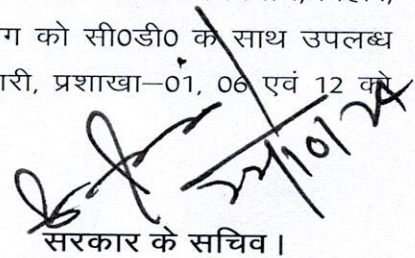 ग को सी0डी0 के साथ उपलब्ध
री, प्रशाखा–01, 06 एवं 12 को
सरकार के सचिव।